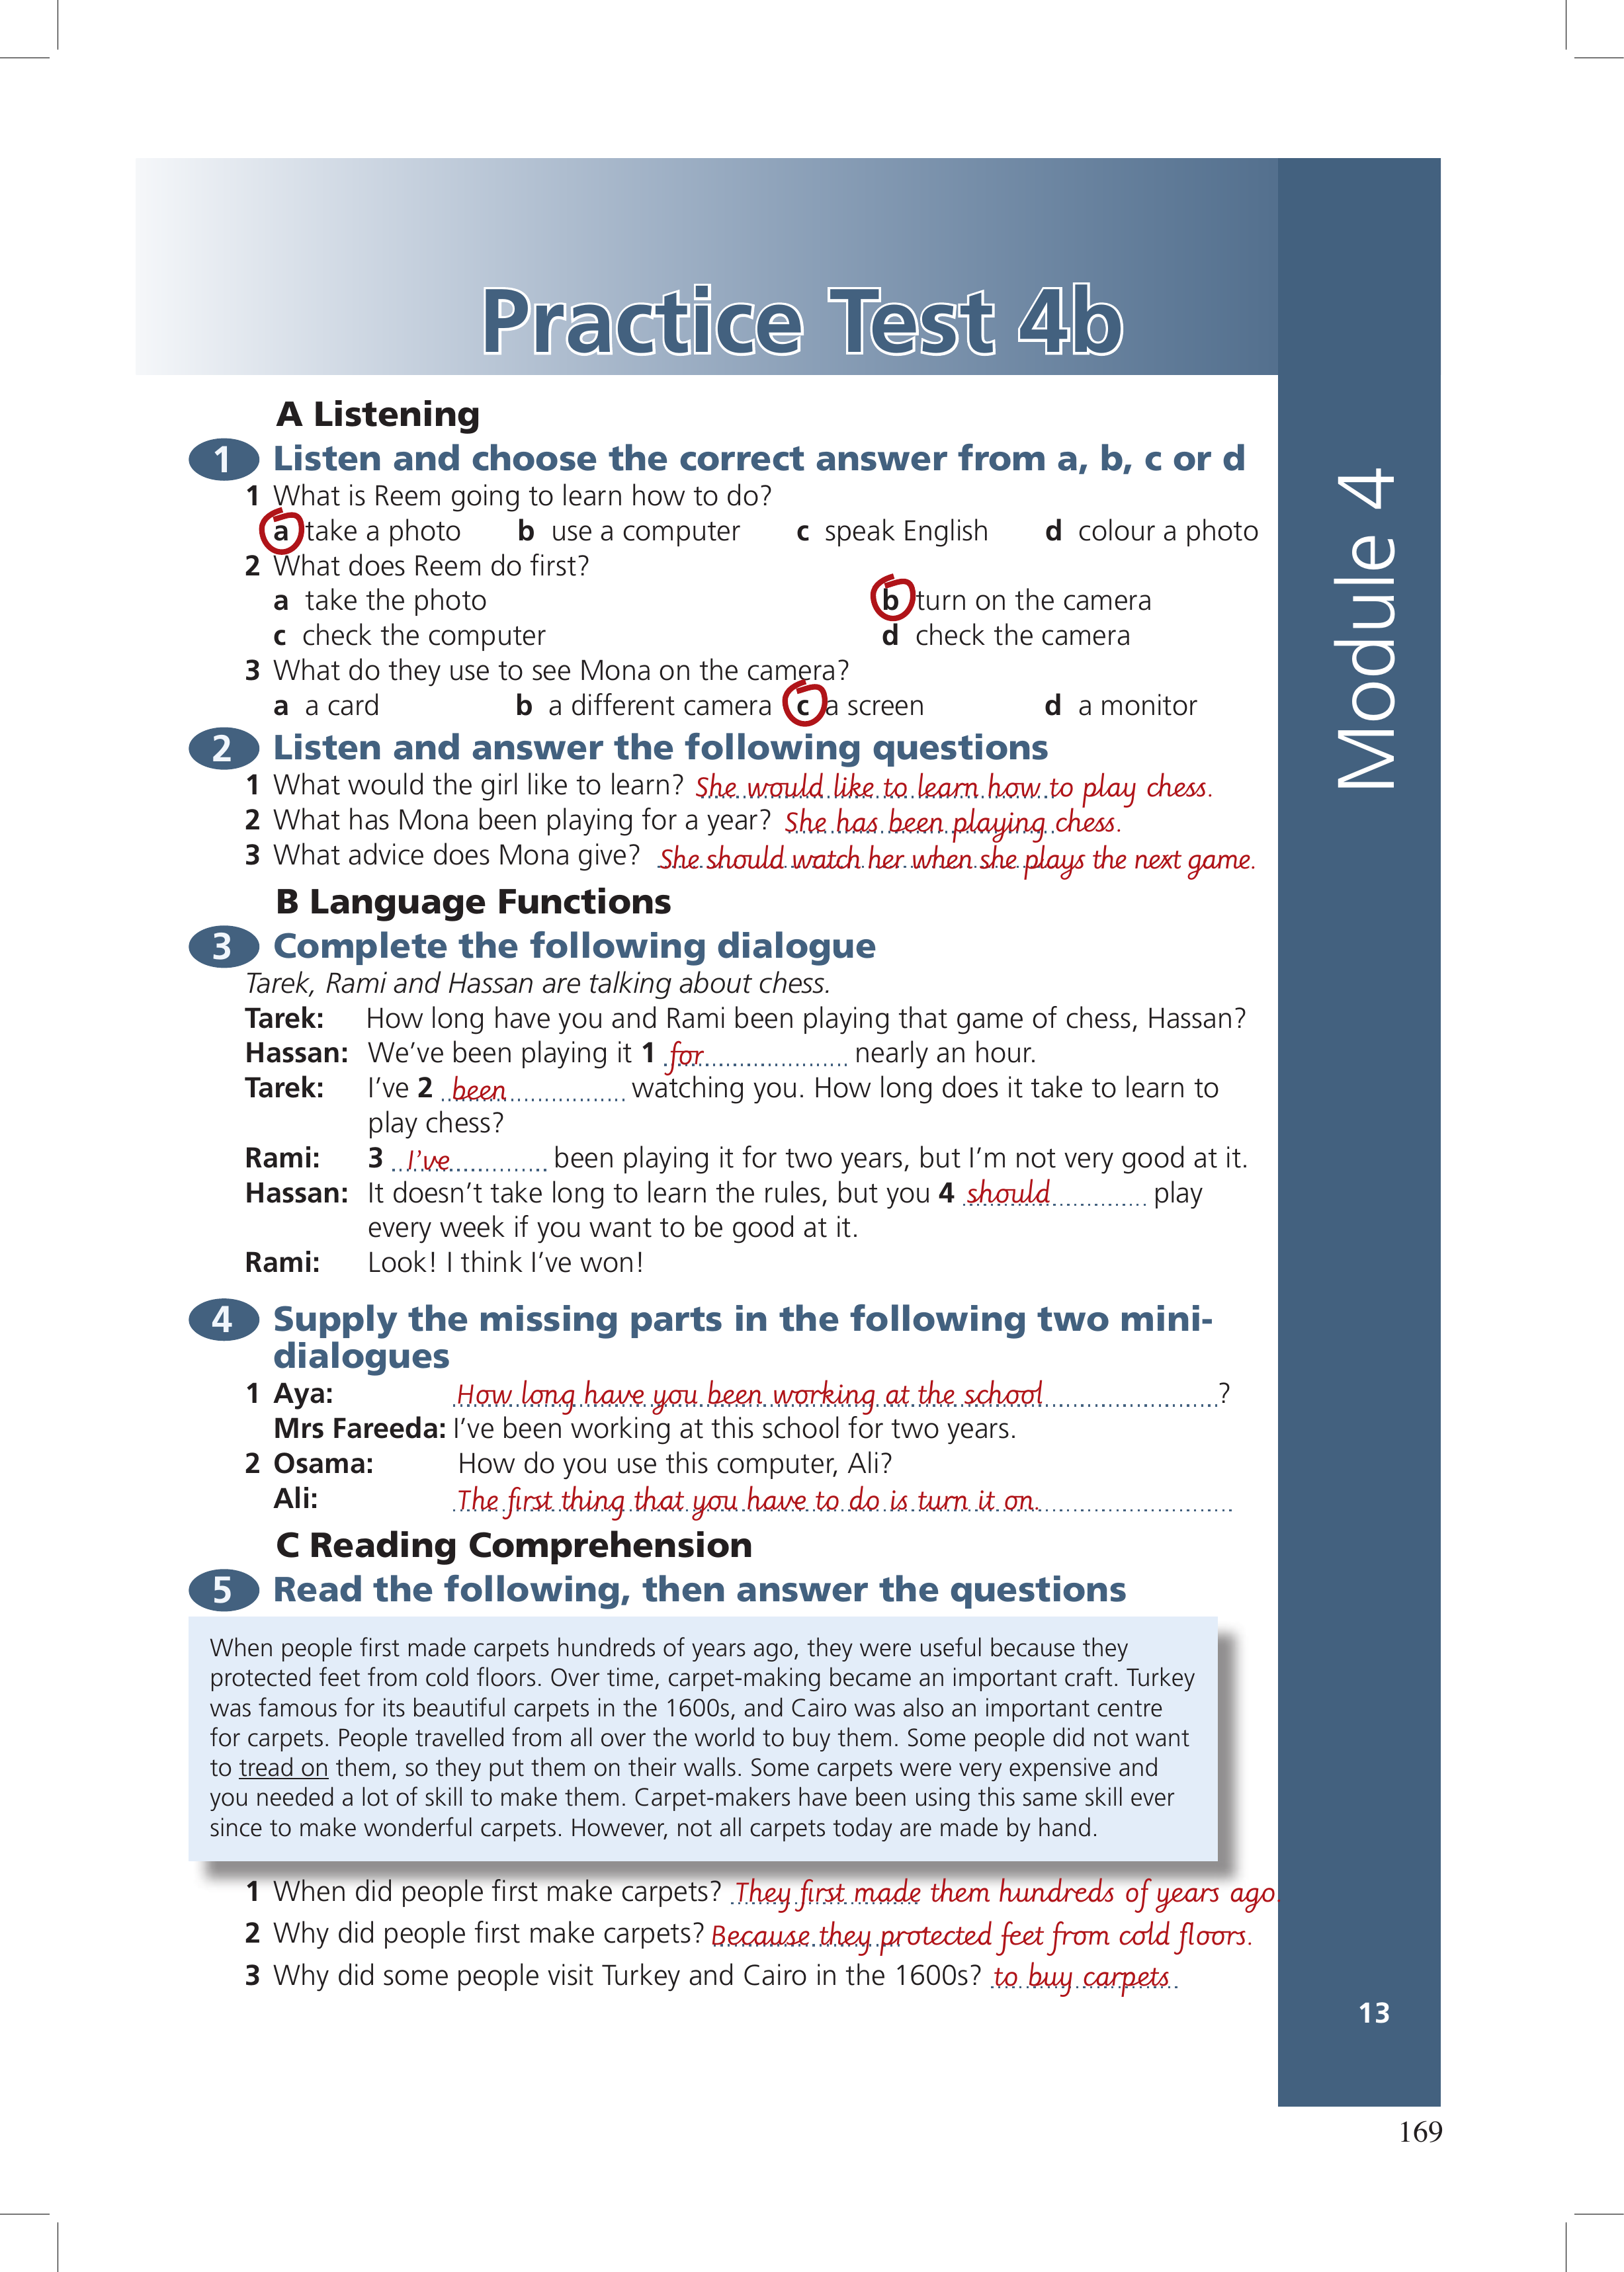 Practice Test 4b
A Listening
1 Listen and choose the correct answer from a, b, c or d
1 What is Reem going to learn how to do?
a take a photo b use a computer c speak English d colour a photo
2 What does Reem do first?
a take the photo b turn on the camera
c check the computer d check the camera
3 What do they use to see Mona on the camera?
a a card b a different camera c a screen d a monitor
2 Listen and answer the following questions
1 What would the girl like to learn? She would like to learn how to play chess.
2 What has Mona been playing for a year? She has been playing chess.
3 What advice does Mona give? She should watch her when she plays the next game.
B Language Functions
3 Complete the following dialogue
Tarek, Rami and Hassan are talking about chess.
Tarek: How long have you and Rami been playing that game of chess, Hassan?
Hassan: We’ve been playing it 1 for nearly an hour.
Tarek: I’ve 2 been watching you. How long does it take to learn to
play chess?
Rami: 3 I’ve been playing it for two years, but I’m not very good at it.
Hassan: It doesn’t take long to learn the rules, but you 4 should play
every week if you want to be good at it.
Rami: Look! I think I’ve won!
4 Supply the missing parts in the following two mini-
dialogues
1 Aya: How long have you been working at the school?
Mrs Fareeda: I’ve been working at this school for two years.
2 Osama: How do you use this computer, Ali?
Ali: The first thing that you have to do is turn it on.
C Reading Comprehension
5 Read the following, then answer the questions
When people first made carpets hundreds of years ago, they were useful because they
protected feet from cold floors. Over time, carpet-making became an important craft. Turkey
was famous for its beautiful carpets in the 1600s, and Cairo was also an important centre
for carpets. People travelled from all over the world to buy them. Some people did not want
to tread on them, so they put them on their walls. Some carpets were very expensive and
you needed a lot of skill to make them. Carpet-makers have been using this same skill ever
since to make wonderful carpets. However, not all carpets today are made by hand.
1 When did people first make carpets? They first made them hundreds of years ago.
2 Why did people first make carpets? Because they protected feet from cold floors.
3 Why did some people visit Turkey and Cairo in the 1600s? to buy carpets
Module 4
13
169